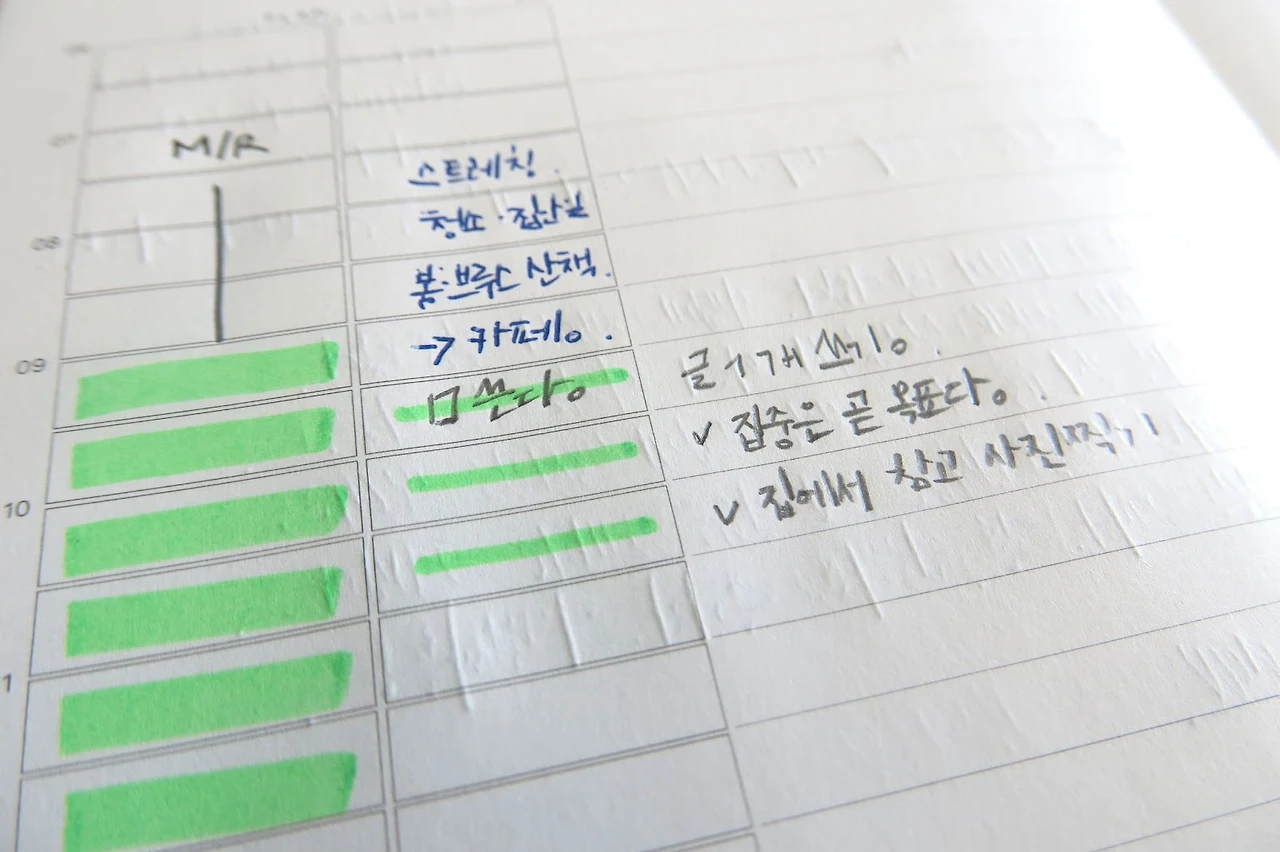 07
M/R
스트레칭.
08
청소·집안일
봄·브루스 산책.
→ 카페.
09
□ 쓴다.
글 1개 쓰기.
✓ 집중은 곧 목표다.
10
✓ 집에서 참고 사진찍기
1